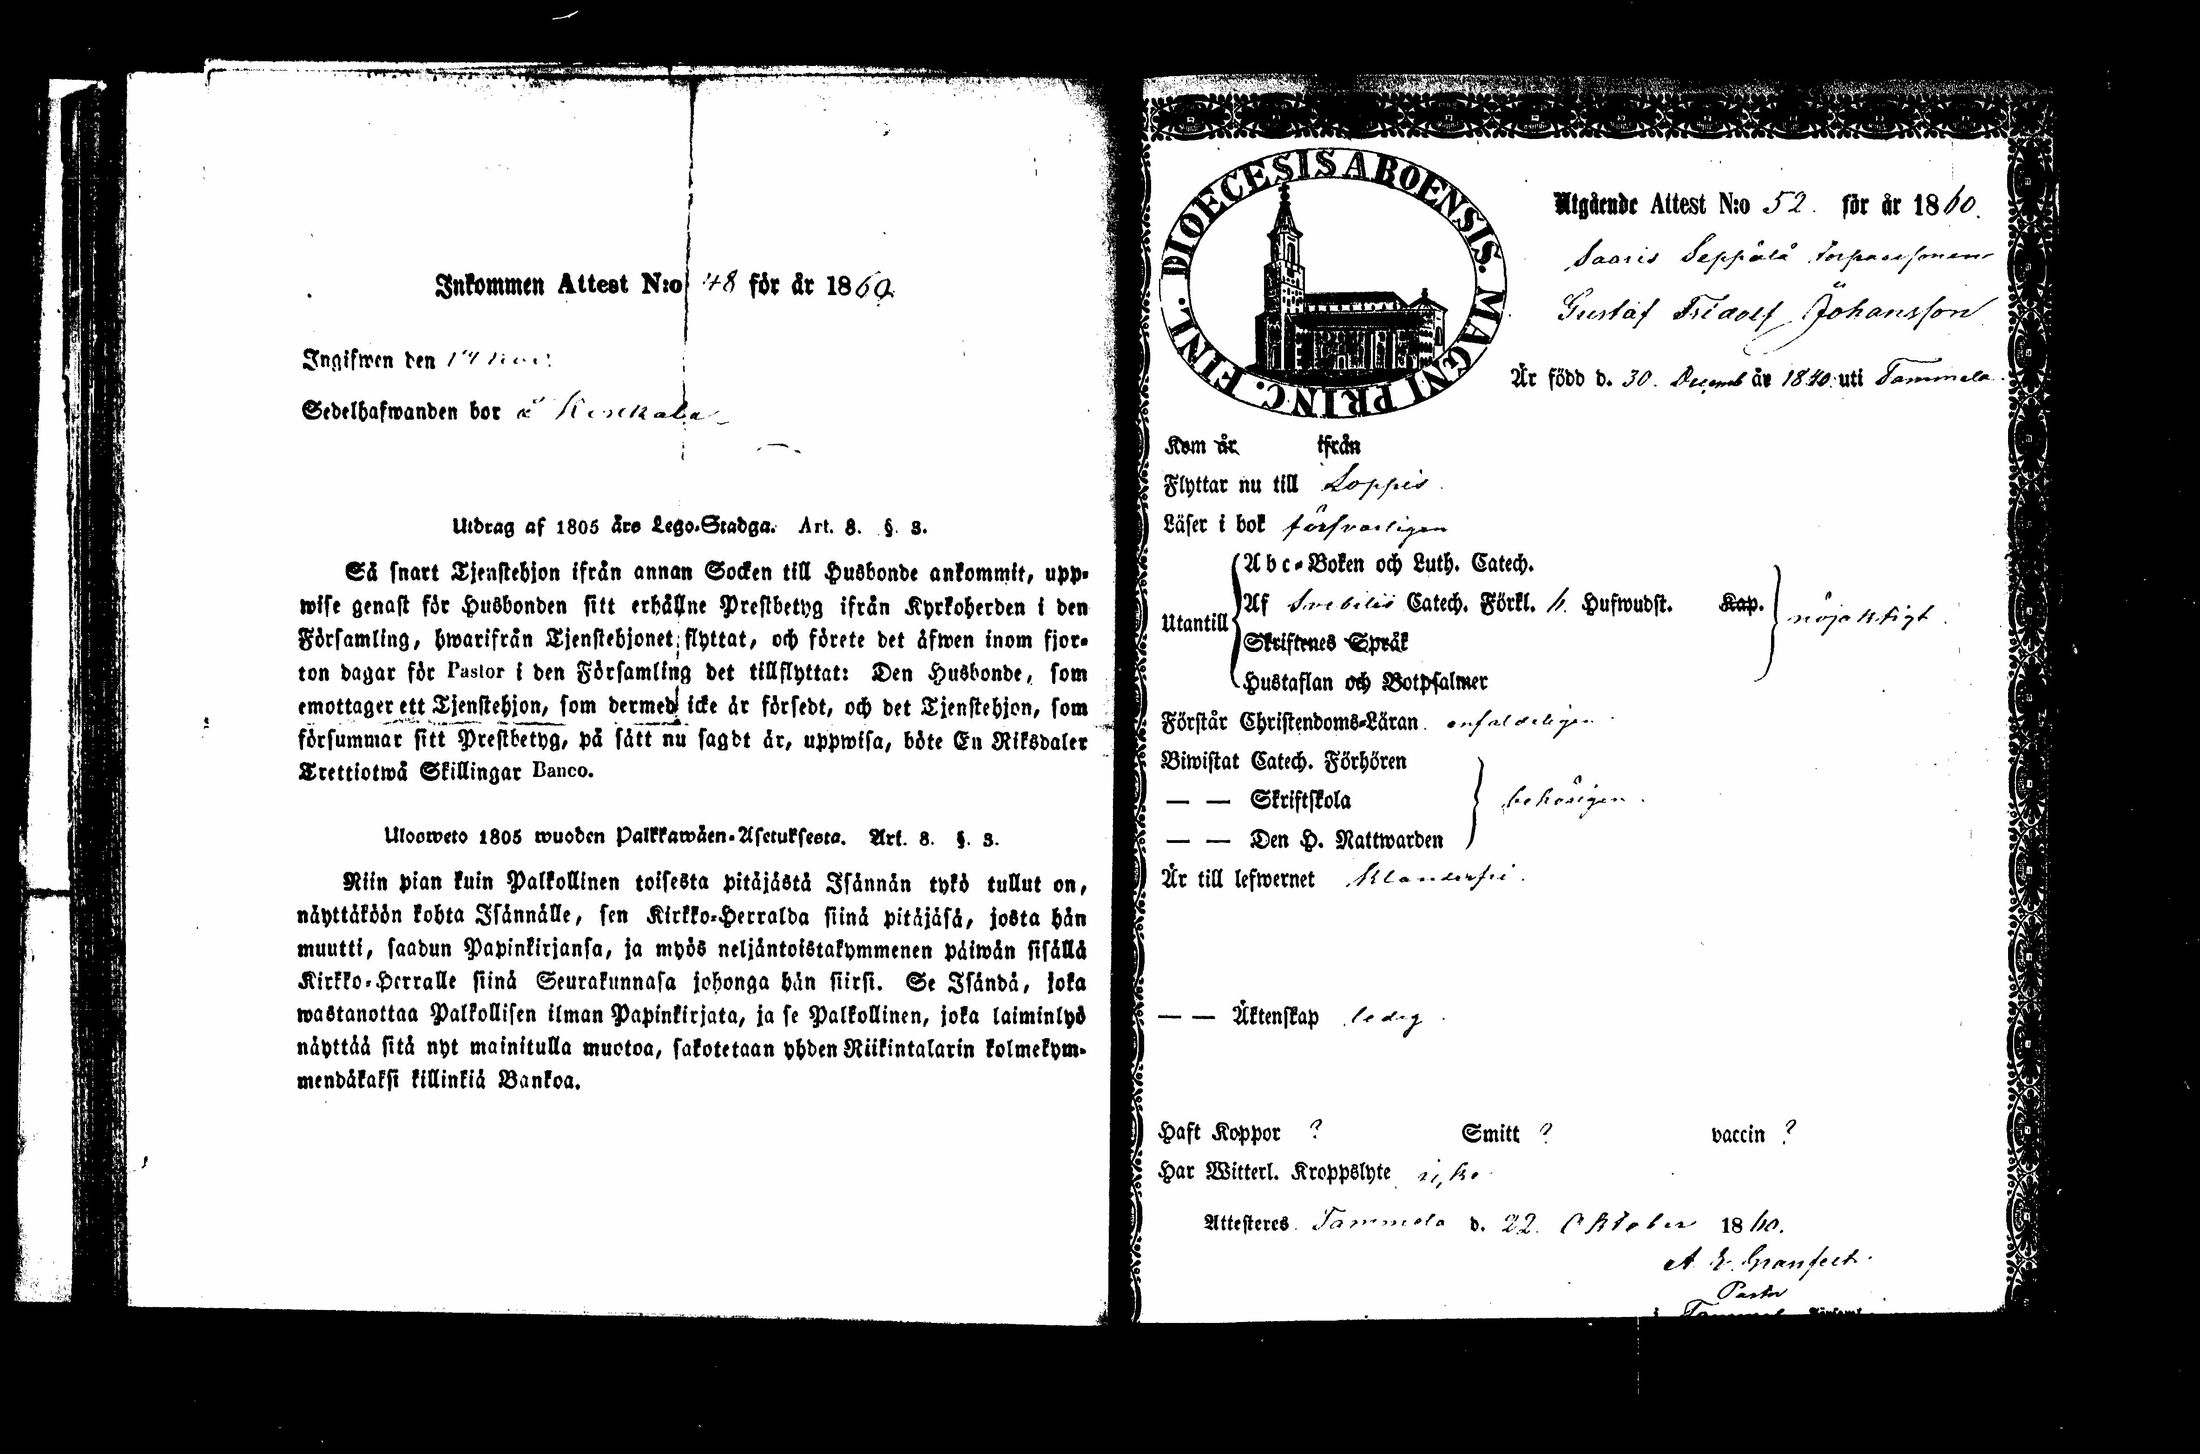 Inkommen Attest N:o 48 för år 1860.
Ingifwen den 14 Nov:
Sedelhafwanden bor å
Utdrag af 1805 års Lego-Stadga. Art. 8. §. 3.
Så snart Tjenstehjon ifrån annan Socken till Husbonde ankommit, upp-
wise genast för Husbonden sitt erhållne Prestbetyg ifrån Kyrkoherden i den
Församling, hwarifrån Tjenstehjonet flyttat, och förete det äfwen inom fjor-
ton dagar för Pastor i den Församling det tillflyttat: Den Husbonde, som
emottager ett Tjenstehjon, som dermed icke är försedt, och det Tjenstehjon, som
försummar sitt Prestbetyg, på sått nu sagdt är, uppwisa, böte En Riksdaler
Trettiotwå Skillingar Banco.
Ulosweto 1805 wuoden Palkkawäen-Asetuksesta. Art. 8. §. 3.
Niin pian kuin Palkollinen toisesta pitäjästä Isännän tykö tullut on,
näyttäköön kohta Isännälle, sen Kirkko-Herralda siinä pitäjäsä, josta hän
muutti, saadun Papinkirjansa, ja myös neljäntoistakymmenen päiwän sisällä
Kirkko-Herralle siinä Seurakunnasa johonga hän siirsi. Se Isändä, joka
wastanottaa Palkollisen ilman Papinkirjata, ja se Palkollinen, joka laiminlyö
näyttää sitä nyt mainitulla muotoa, sakotetaan yhden Riikintalarin kolmekym-
mendäkaksi killinkiä Bankoa.
DIOECESIS ABOENSIS. MAGNI PRINC. FINL.
Utgående Attest N:o 52. för år 1860.
Saaris Seppälä torparesonen
Gustaf Fridolf Johansson
Är född d. 30. Decemb år 1840. uti Tammela.
Kom år ifrån
Flyttar nu till Loppis.
Läser i bok försvarligen
Abc-Boken och Luth. Catech.
Utantill Af Svebilii Catech. Förkl. h. Hufwudst. Kap. nöjaktigt.
Skriftenes Språk
Hustaflan och Botpsalmer
Förstår Christendoms-Läran enfaldeligen.
Biwistat Catech. Förhören
— — Skriftskola behörigen.
— — Den H. Nattwarden
Är till lefwernet klanderfri.
— — Äktenskap ledig.
Haft Koppor ? Smitt ? vaccin ?
Har Witterl. Kroppslyte icke.
Attesteres Tammela d. 22. Oktober 1860.
A. E. Granfelt.
Pastor
i Tammela Församl.